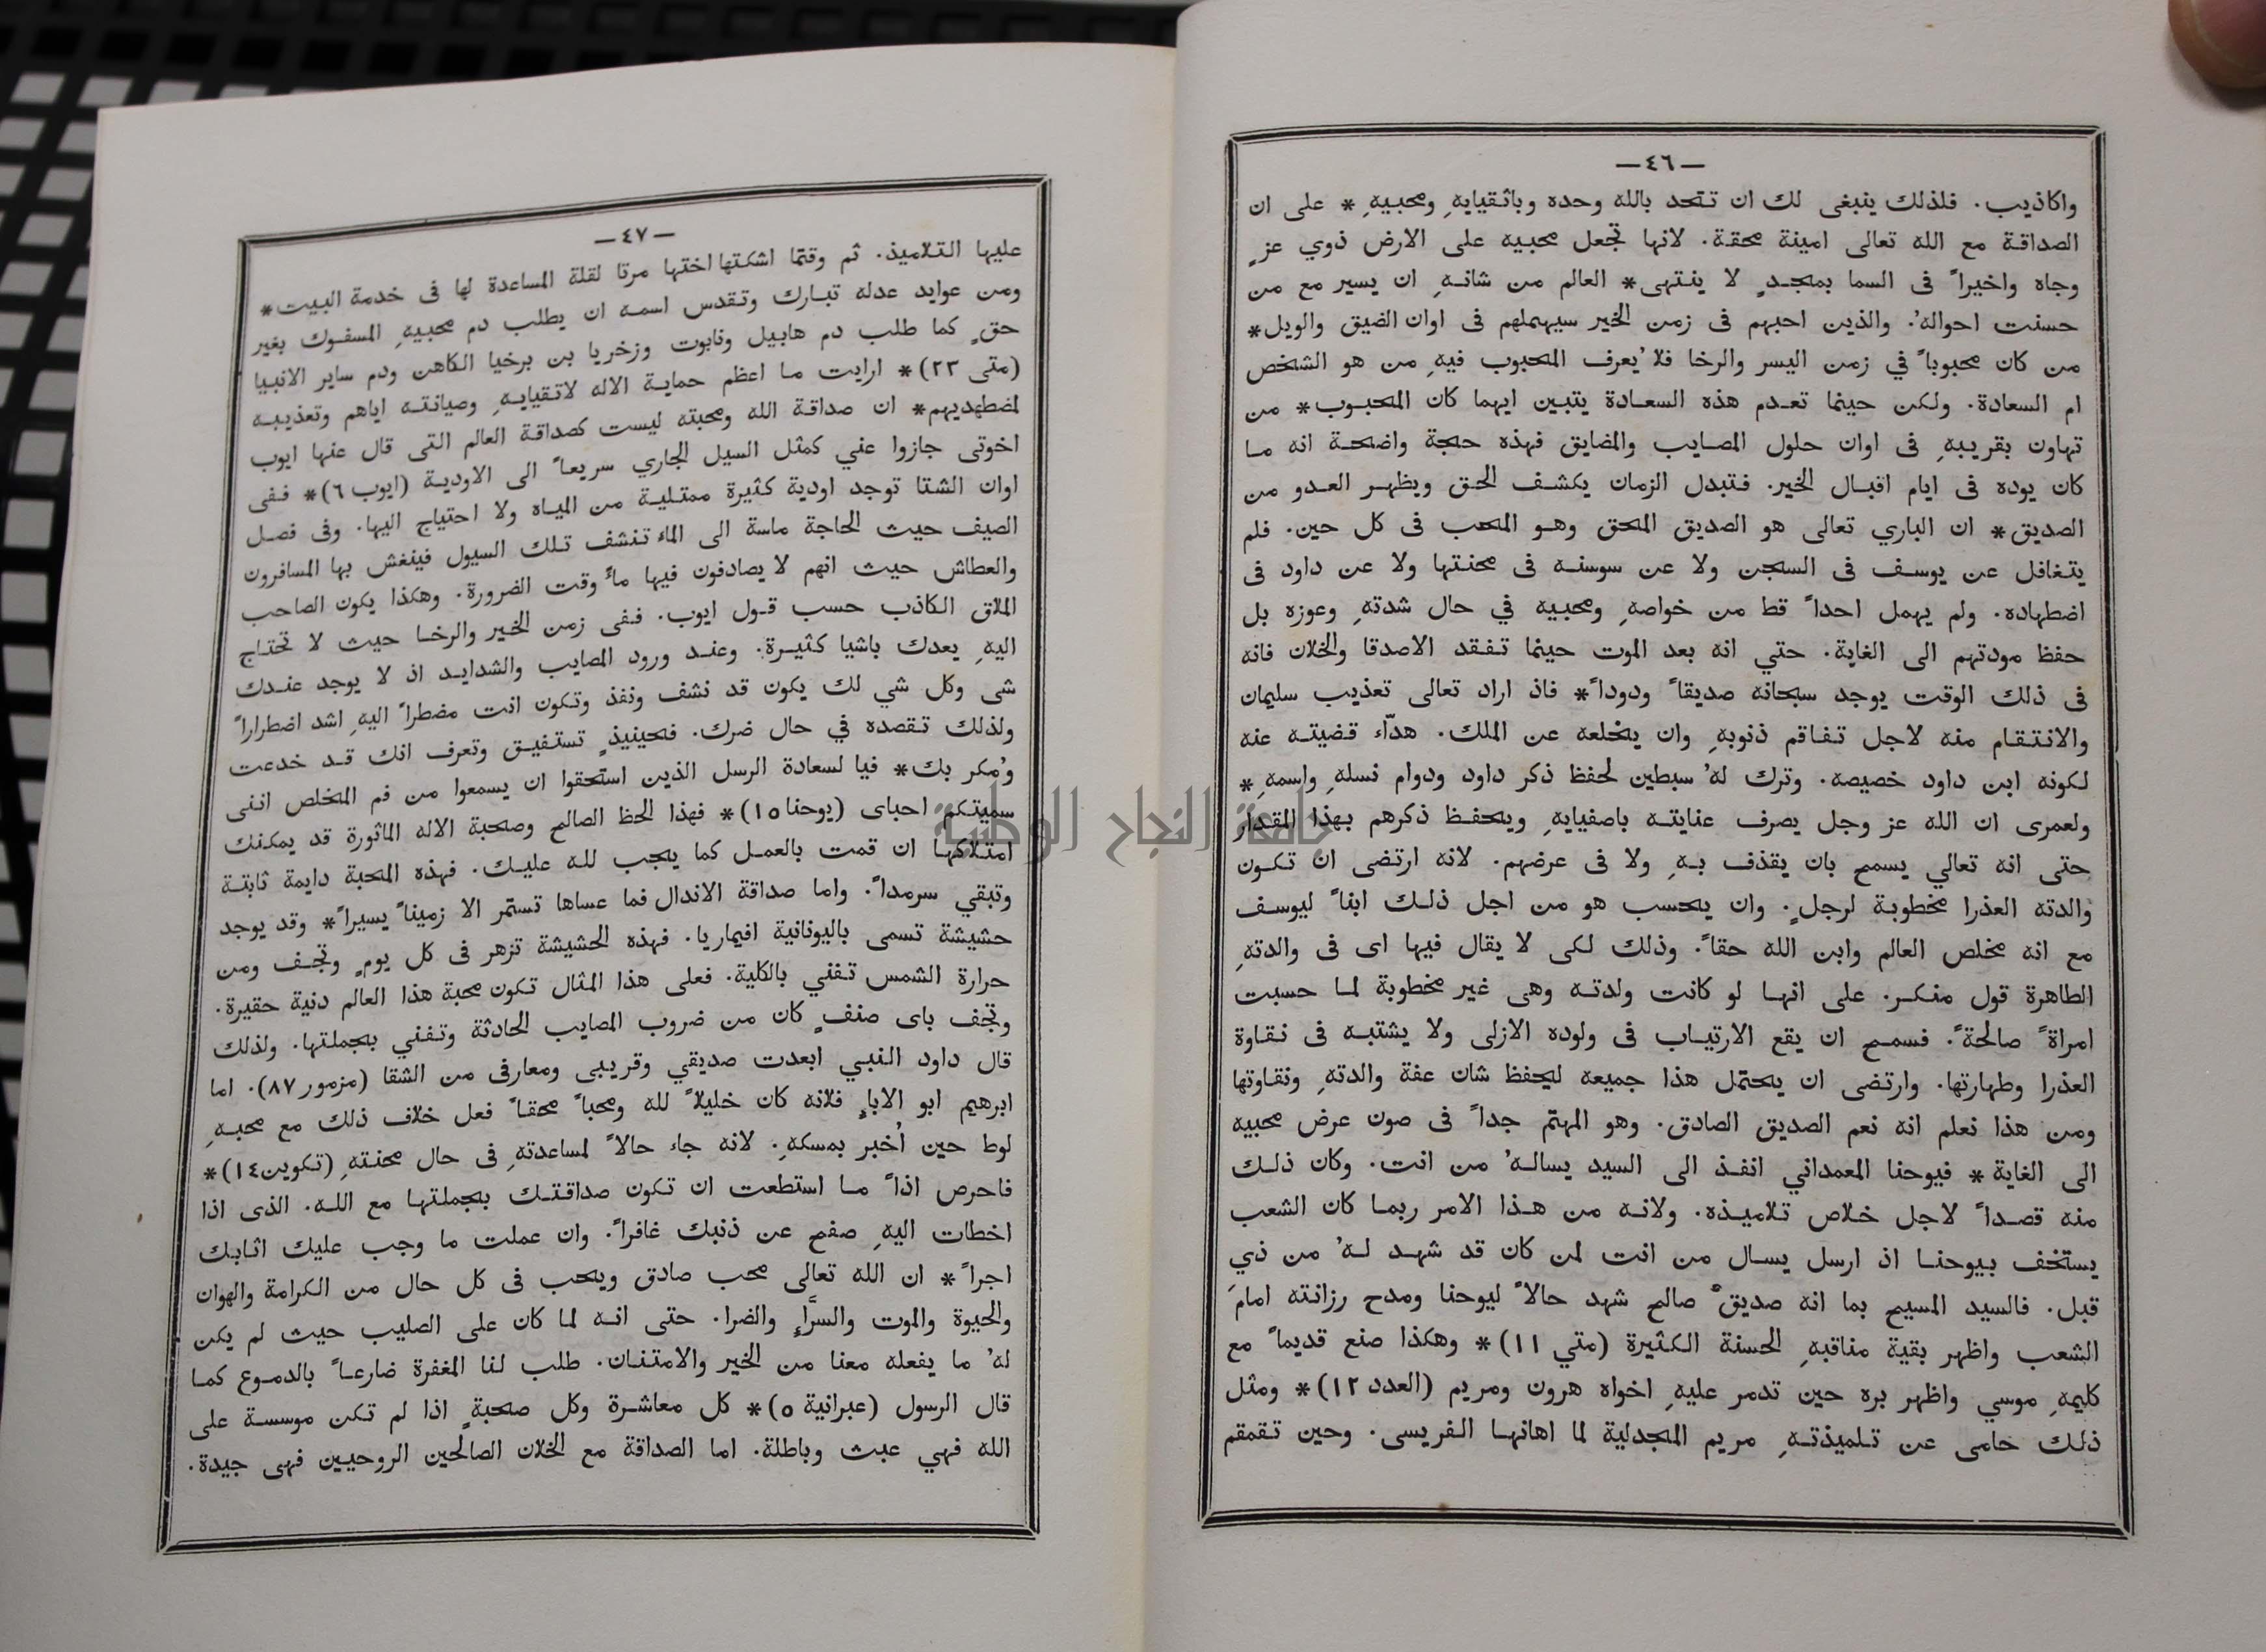 — ٤٦ —
واكاذيب. فلذلك ينبغى لك ان تتحد بالله وحده وباتقيايهِ ومحبيهِ * على ان
الصداقة مع الله تعالى امينة محقة. لانها تجعل محبيه على الارض ذوي عزٍ
وجاه واخيراً فى السما بمجدٍ لا ينتهى * العالم من شانهِ ان يسير مع من
حسنت احواله'. والذين احبهم فى زمن الخير سيهملهم فى اوان الضيق والويل *
من كان محبوباً في زمن اليسر والرخا فلا يُعرف المحبوب فيهِ من هو الشخص
ام السعادة. ولكن حينما تعدم هذه السعادة يتبين ايهما كان المحبوب * من
تهاون بقريبهِ فى اوان حلول المصايب والمضايق فهذه حجة واضحة انه ما
كان يوده فى ايام اقبال الخير. فتبدل الزمان يكشف الحق ويظهر العدو من
الصديق * ان الباري تعالى هو الصديق المحق وهو المحب فى كل حين. فلم
يتغافل عن يوسف فى السجن ولا عن سوسنه فى محنتها ولا عن داود فى
اضطهاده. ولم يهمل احداً قط من خواصهِ ومحبيه في حال شدتهِ وعوزه بل
حفظ مودتهم الى الغاية. حتي انه بعد الموت حينما تفقد الاصدقا والخلان فانه
فى ذلك الوقت يوجد سبحانه صديقاً ودوداً * فاذ اراد تعالى تعذيب سليمان
والانتقام منه لاجل تفاقم ذنوبهِ وان يخلعه عن الملك. هدّاء قضيته عنه
لكونه ابن داود خصيصه. وترك له' سبطين لحفظ ذكر داود ودوام نسلهِ واسمهِ *
ولعمرى ان الله عز وجل يصرف عنايته باصفيايهِ ويحفظ ذكرهم بهذا المقدار
حتى انه تعالي يسمح بان يقذف بهِ ولا فى عرضهم. لانه ارتضى ان تكون
والدته العذرا مخطوبة لرجلٍ. وان يحسب هو من اجل ذلك ابناً ليوسف
مع انه مخلص العالم وابن الله حقاً. وذلك لكى لا يقال فيها اى فى والدتهِ
الطاهرة قول منكر. على انها لو كانت ولدته وهى غير مخطوبة لما حسبت
امراةً صالحةً. فسمح ان يقع الارتياب فى ولوده الازلى ولا يشتبه فى نقاوة
العذرا وطهارتها. وارتضى ان يحتمل هذا جميعه ليحفظ شان عفة والدتهِ ونقاوتها
ومن هذا نعلم انه نعم الصديق الصادق. وهو المهتم جداً فى صون عرض محبيه
الى الغاية * فيوحنا المعمداني انفذ الى السيد يساله' من انت. وكان ذلك
منه قصداً لاجل خلاص تلاميذه. ولانه من هذا الامر ربما كان الشعب
يستخف بيوحنا اذ ارسل يسال من انت لمن كان قد شهد له' من ذي
قبل. فالسيد المسيح بما انه صديقٌ صالح شهد حالاً ليوحنا ومدح رزانته امامَ
الشعب واظهر بقية مناقبهِ الحسنة الكثيرة (متي ١١) * وهكذا صنع قديماً مع
كليمهِ موسي واظهر بره حين تدمر عليهِ اخواه هرون ومريم (العدد ١٢) * ومثل
ذلك حامى عن تلميذتهِ مريم المجدلية لما اهانها الفريسى. وحين تقمقم
— ٤٧ —
عليها التلاميذ. ثم وقتما اشكتها اختها مرتا لقلة المساعدة لها فى خدمة البيت *
ومن عوايد عدله تبارك وتقدس اسمه ان يطلب دم محبيهِ المسفوك بغير
حقٍ كما طلب دم هابيل ونابوت وزخريا بن برخيا الكاهن ودم ساير الانبيا
(متى ٢٣) * ارايت ما اعظم حماية الاله لاتقيايهِ وصيانته اياهم وتعذيبه
لمضطهديهم * ان صداقة الله ومحبته ليست كصداقة العالم التى قال عنها ايوب
اخوتى جازوا عني كمثل السيل الجاري سريعاً الى الاودية (ايوب ٦) * ففى
اوان الشتا توجد اودية كثيرة ممتلية من المياه ولا احتياج اليها. وفى فصل
الصيف حيث الحاجة ماسة الى الماء تنشف تلك السيول فينغش بها المسافرون
والعطاش حيث انهم لا يصادفون فيها ماءً وقت الضرورة. وهكذا يكون الصاحب
الملاق الكاذب حسب قول ايوب. ففى زمن الخير والرخا حيث لا تحتاج
اليهِ يعدك باشيا كثيرة. وعند ورود المصايب والشدايد اذ لا يوجد عندك
شى وكل شي لك يكون قد نشف ونفذ وتكون انت مضطراً اليهِ اشد اضطراراً
ولذلك تقصده في حال ضرك. فحينيذٍ تستفيق وتعرف انك قد خدعت
ومُكر بك * فيا لسعادة الرسل الذين استحقوا ان يسمعوا من فم المخلص اننى
سميتكم احباى (يوحنا ١٥) * فهذا الحظ الصالح وصحبة الاله الماثورة قد يمكنك
امتلاكها ان قمت بالعمل كما يجب لله عليك. فهذه المحبة دايمة ثابتة
وتبقي سرمداً. واما صداقة الاندال فما عساها تستمر الا زميناً يسيراً * وقد يوجد
حشيشة تسمى باليونانية افيماريا. فهذه الحشيشة تزهر فى كل يومٍ وتجف ومن
حرارة الشمس تفني بالكلية. فعلى هذا المثال تكون محبة هذا العالم دنية حقيرة.
وتجف باى صنفٍ كان من ضروب المصايب الحادثة وتفني بجملتها. ولذلك
قال داود النبي ابعدت صديقي وقريبى ومعارفى من الشقا (مزمور ٨٧). اما
ابرهيم ابو الاباءٍ فلانه كان خليلاً لله ومحباً محقاً فعل خلاف ذلك مع محبهِ
لوط حين أُخبر بمسكهِ. لانه جاء حالاً لمساعدتهِ فى حال محنتهِ (تكوين ١٤) *
فاحرص اذاً ما استطعت ان تكون صداقتك بجملتها مع الله. الذى اذا
اخطات اليهِ صفح عن ذنبك غافراً. وان عملت ما وجب عليك اثابك
اجراً * ان الله تعالى محب صادق ويحب فى كل حال من الكرامة والهوان
والحيوة والموت والسرَّاءٍ والضرا. حتى انه لما كان على الصليب حيث لم يكن
له' ما يفعله معنا من الخير والامتنان. طلب لنا المغفرة ضارعاً بالدموع كما
قال الرسول (عبرانية ٥) * كل معاشرة وكل صحبةٍ اذا لم تكن موسسة على
الله فهي عبث وباطلة. اما الصداقة مع الخلان الصالحين الروحيين فهى جيدة.
جامعة النجاح الوطنية